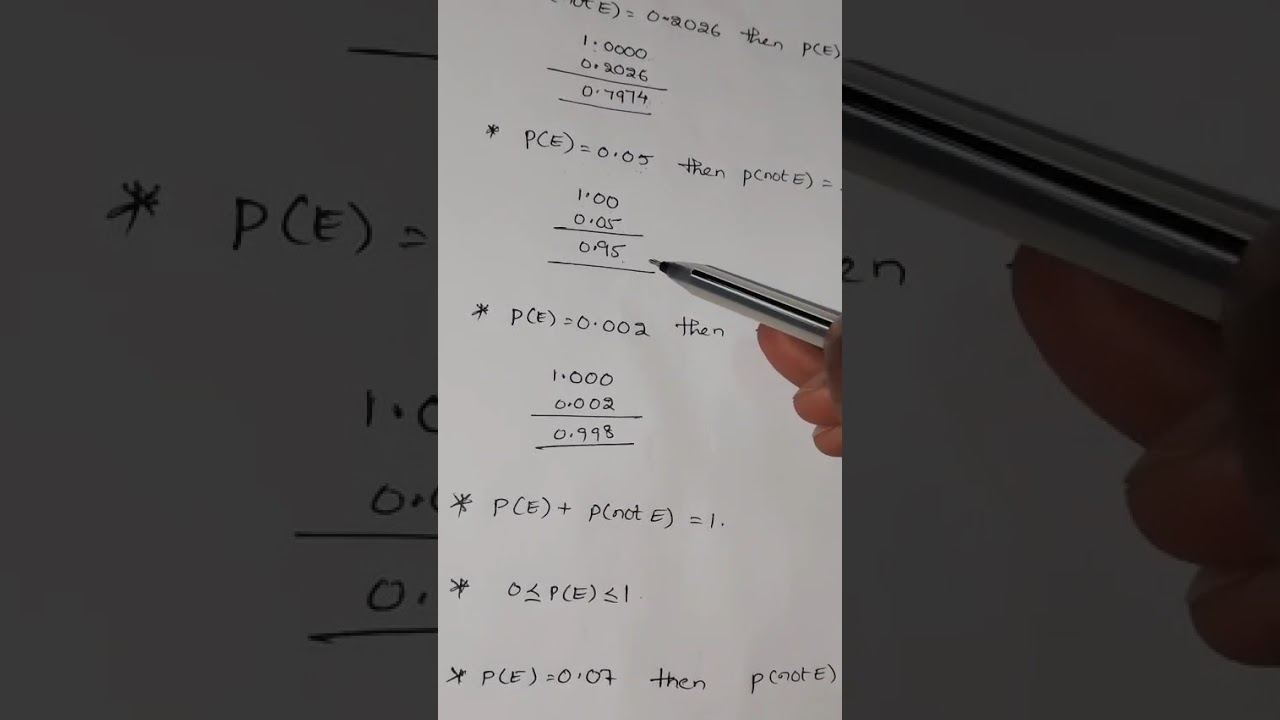 not E) = 0.2026 then P(E)
1.0000
0.2026
0.7974
* P(E) = 0.05 then p(not E) =
1.00
0.05
0.95
* P(E) = 0.002 then
1.000
0.002
0.998
* P(E) + p(not E) = 1.
* 0 ≤ P(E) ≤ 1.
* P(E) = 0.07 then p(not E)